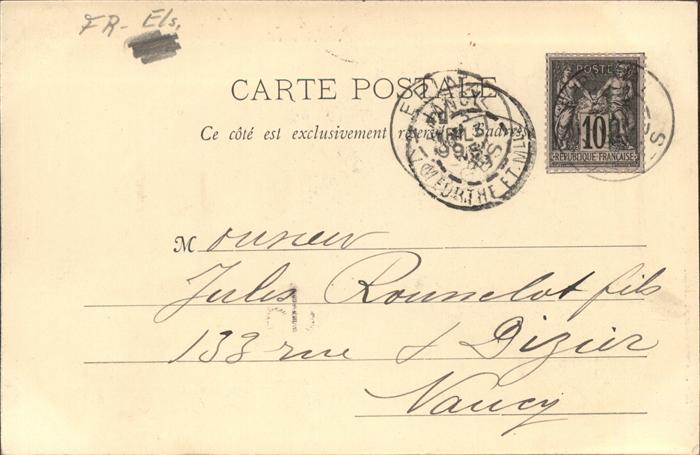 FR- Els.
CARTE POSTALE
POSTE
10
RÉPUBLIQUE FRANÇAISE
Ce côté est exclusivement réservé à l'adresse
NANCY
MEURTHE ET M
Monsieur
Jules Rounelot fils
133 rue St Dizier
Nancy